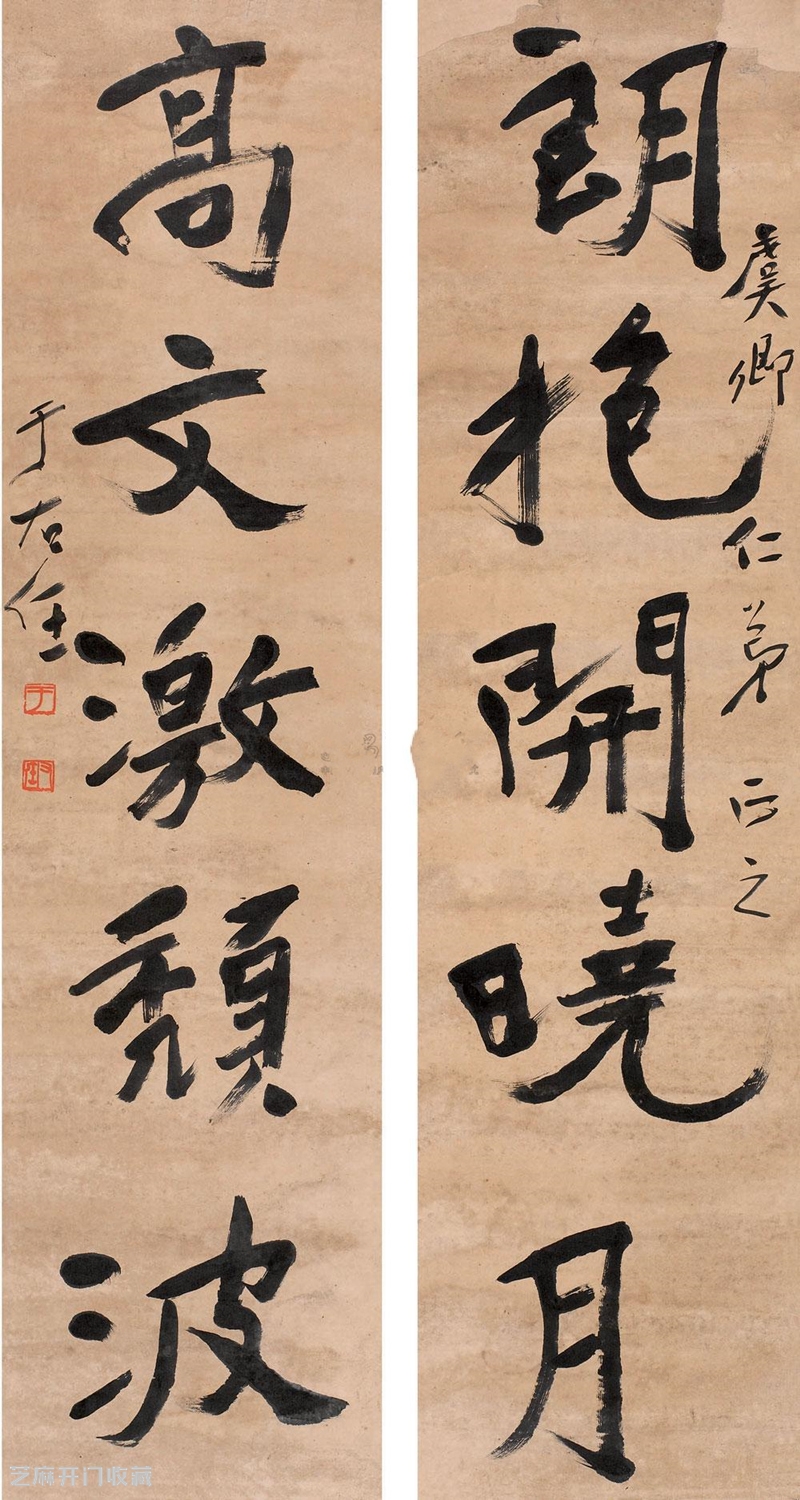 朗抱開曉月
虞卿仁弟正之
高文激頹波
于右任
芝麻开门收藏